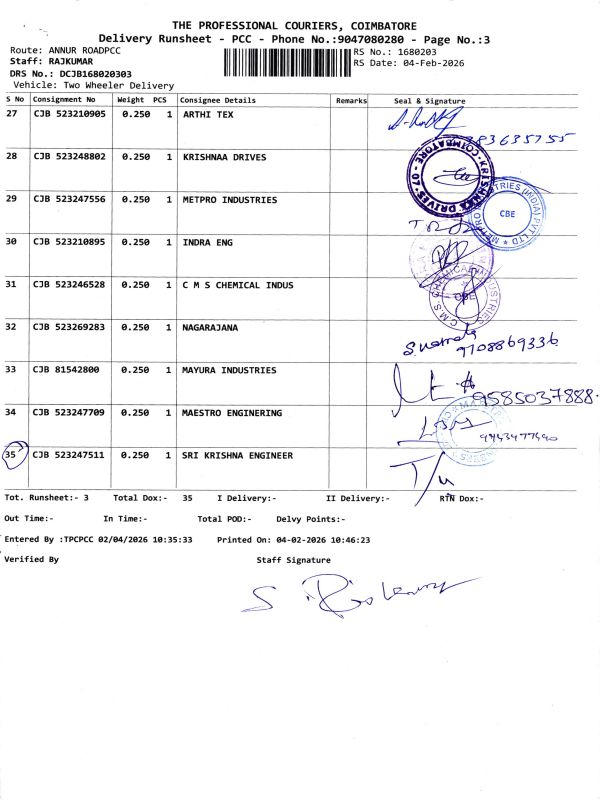 THE PROFESSIONAL COURIERS, COIMBATORE
Delivery Runsheet - PCC - Phone No.:9047080280 - Page No.:3
Route: ANNUR ROADPCC RS No.: 1680203
Staff: RAJKUMAR RS Date: 04-Feb-2026
DRS No.: DCJB168020303
Vehicle: Two Wheeler Delivery
S No Consignment No Weight PCS Consignee Details Remarks Seal & Signature
27 CJB 523210905 0.250 1 ARTHI TEX
28 CJB 523248802 0.250 1 KRISHNAA DRIVES
KRISHNAA DRIVES COIMBATORE - 07
29 CJB 523247556 0.250 1 METPRO INDUSTRIES
METPRO INDUSTRIES (INDIA) PVT LTD CBE
30 CJB 523210895 0.250 1 INDRA ENG
31 CJB 523246528 0.250 1 C M S CHEMICAL INDUS
C.M.S CHEMICAL INDUSTRIES CBE
32 CJB 523269283 0.250 1 NAGARAJANA
9708869336
33 CJB 81542800 0.250 1 MAYURA INDUSTRIES
9585037888
34 CJB 523247709 0.250 1 MAESTRO ENGINERING
35 CJB 523247511 0.250 1 SRI KRISHNA ENGINEER
Tot. Runsheet:- 3 Total Dox:- 35 I Delivery:- II Delivery:- RTN Dox:-
Out Time:- In Time:- Total POD:- Delvy Points:-
Entered By :TPCPCC 02/04/2026 10:35:33 Printed On: 04-02-2026 10:46:23
Verified By Staff Signature